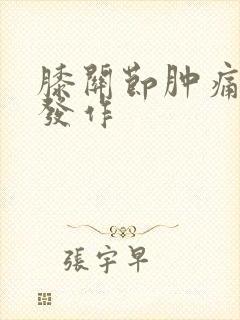 膝關節肿痛
發作
張宇早